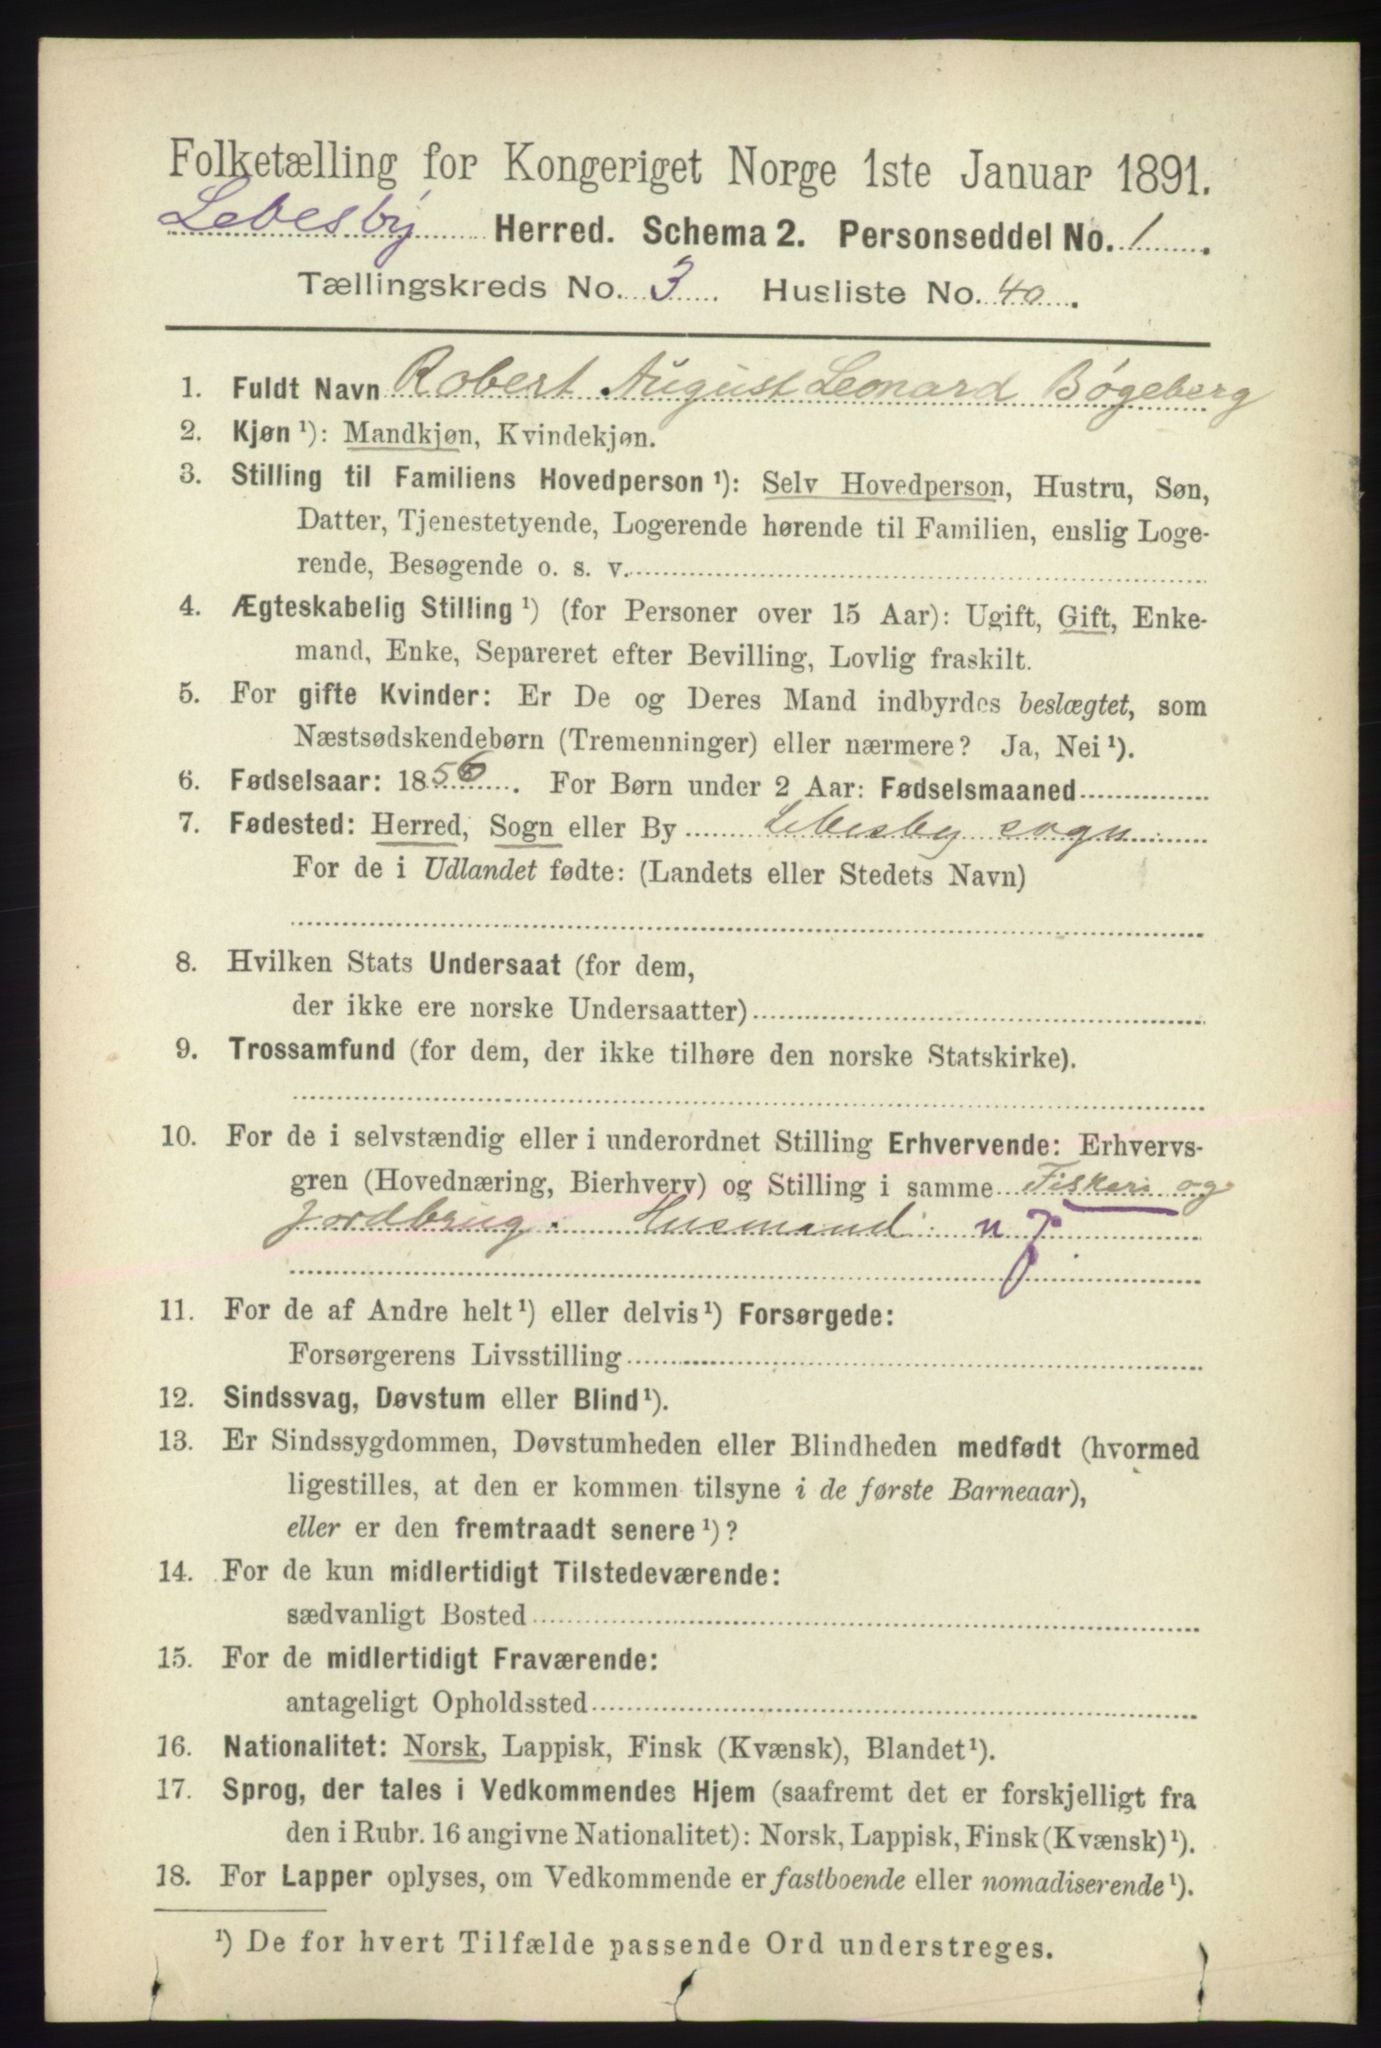 Folketælling for Kongeriget Norge 1ste Januar 1891.
Lebesby Herred. Schema 2. Personseddel No. 1.
Tællingskreds No. 3. Husliste No. 40.
1. Fuldt Navn Robert August Leonard Bøgeberg
2. Kjøn¹): Mandkjøn, Kvindekjøn.
3. Stilling til Familiens Hovedperson¹): Selv Hovedperson, Hustru, Søn,
Datter, Tjenestetyende, Logerende hørende til Familien, enslig Loge-
rende, Besøgende o. s. v.
4. Ægteskabelig Stilling¹) (for Personer over 15 Aar): Ugift, Gift, Enke-
mand, Enke, Separeret efter Bevilling, Lovlig fraskilt.
5. For gifte Kvinder: Er De og Deres Mand indbyrdes beslægtet, som
Næstsødskendebørn (Tremenninger) eller nærmere? Ja, Nei¹).
6. Fødselsaar: 1856. For Børn under 2 Aar: Fødselsmaaned
7. Fødested: Herred, Sogn eller By Lebesby sogn
For de i Udlandet fødte: (Landets eller Stedets Navn)
8. Hvilken Stats Undersaat (for dem,
der ikke ere norske Undersaatter)
9. Trossamfund (for dem, der ikke tilhøre den norske Statskirke).
10. For de i selvstændig eller i underordnet Stilling Erhvervende: Erhvervs-
gren (Hovednæring, Bierhverv) og Stilling i samme Fiskeri og
jordbrug. Husmand
11. For de af Andre helt¹) eller delvis¹) Forsørgede:
Forsørgerens Livsstilling
12. Sindssvag, Døvstum eller Blind¹).
13. Er Sindssygdommen, Døvstumheden eller Blindheden medfødt (hvormed
ligestilles, at den er kommen tilsyne i de første Barneaar),
eller er den fremtraadt senere¹)?
14. For de kun midlertidigt Tilstedeværende:
sædvanligt Bosted
15. For de midlertidigt Fraværende:
antageligt Opholdssted
16. Nationalitet: Norsk, Lappisk, Finsk (Kvænsk), Blandet¹).
17. Sprog, der tales i Vedkommendes Hjem (saafremt det er forskjelligt fra
den i Rubr. 16 angivne Nationalitet): Norsk, Lappisk, Finsk (Kvænsk)¹).
18. For Lapper oplyses, om Vedkommende er fastboende eller nomadiserende¹).
¹) De for hvert Tilfælde passende Ord understreges.